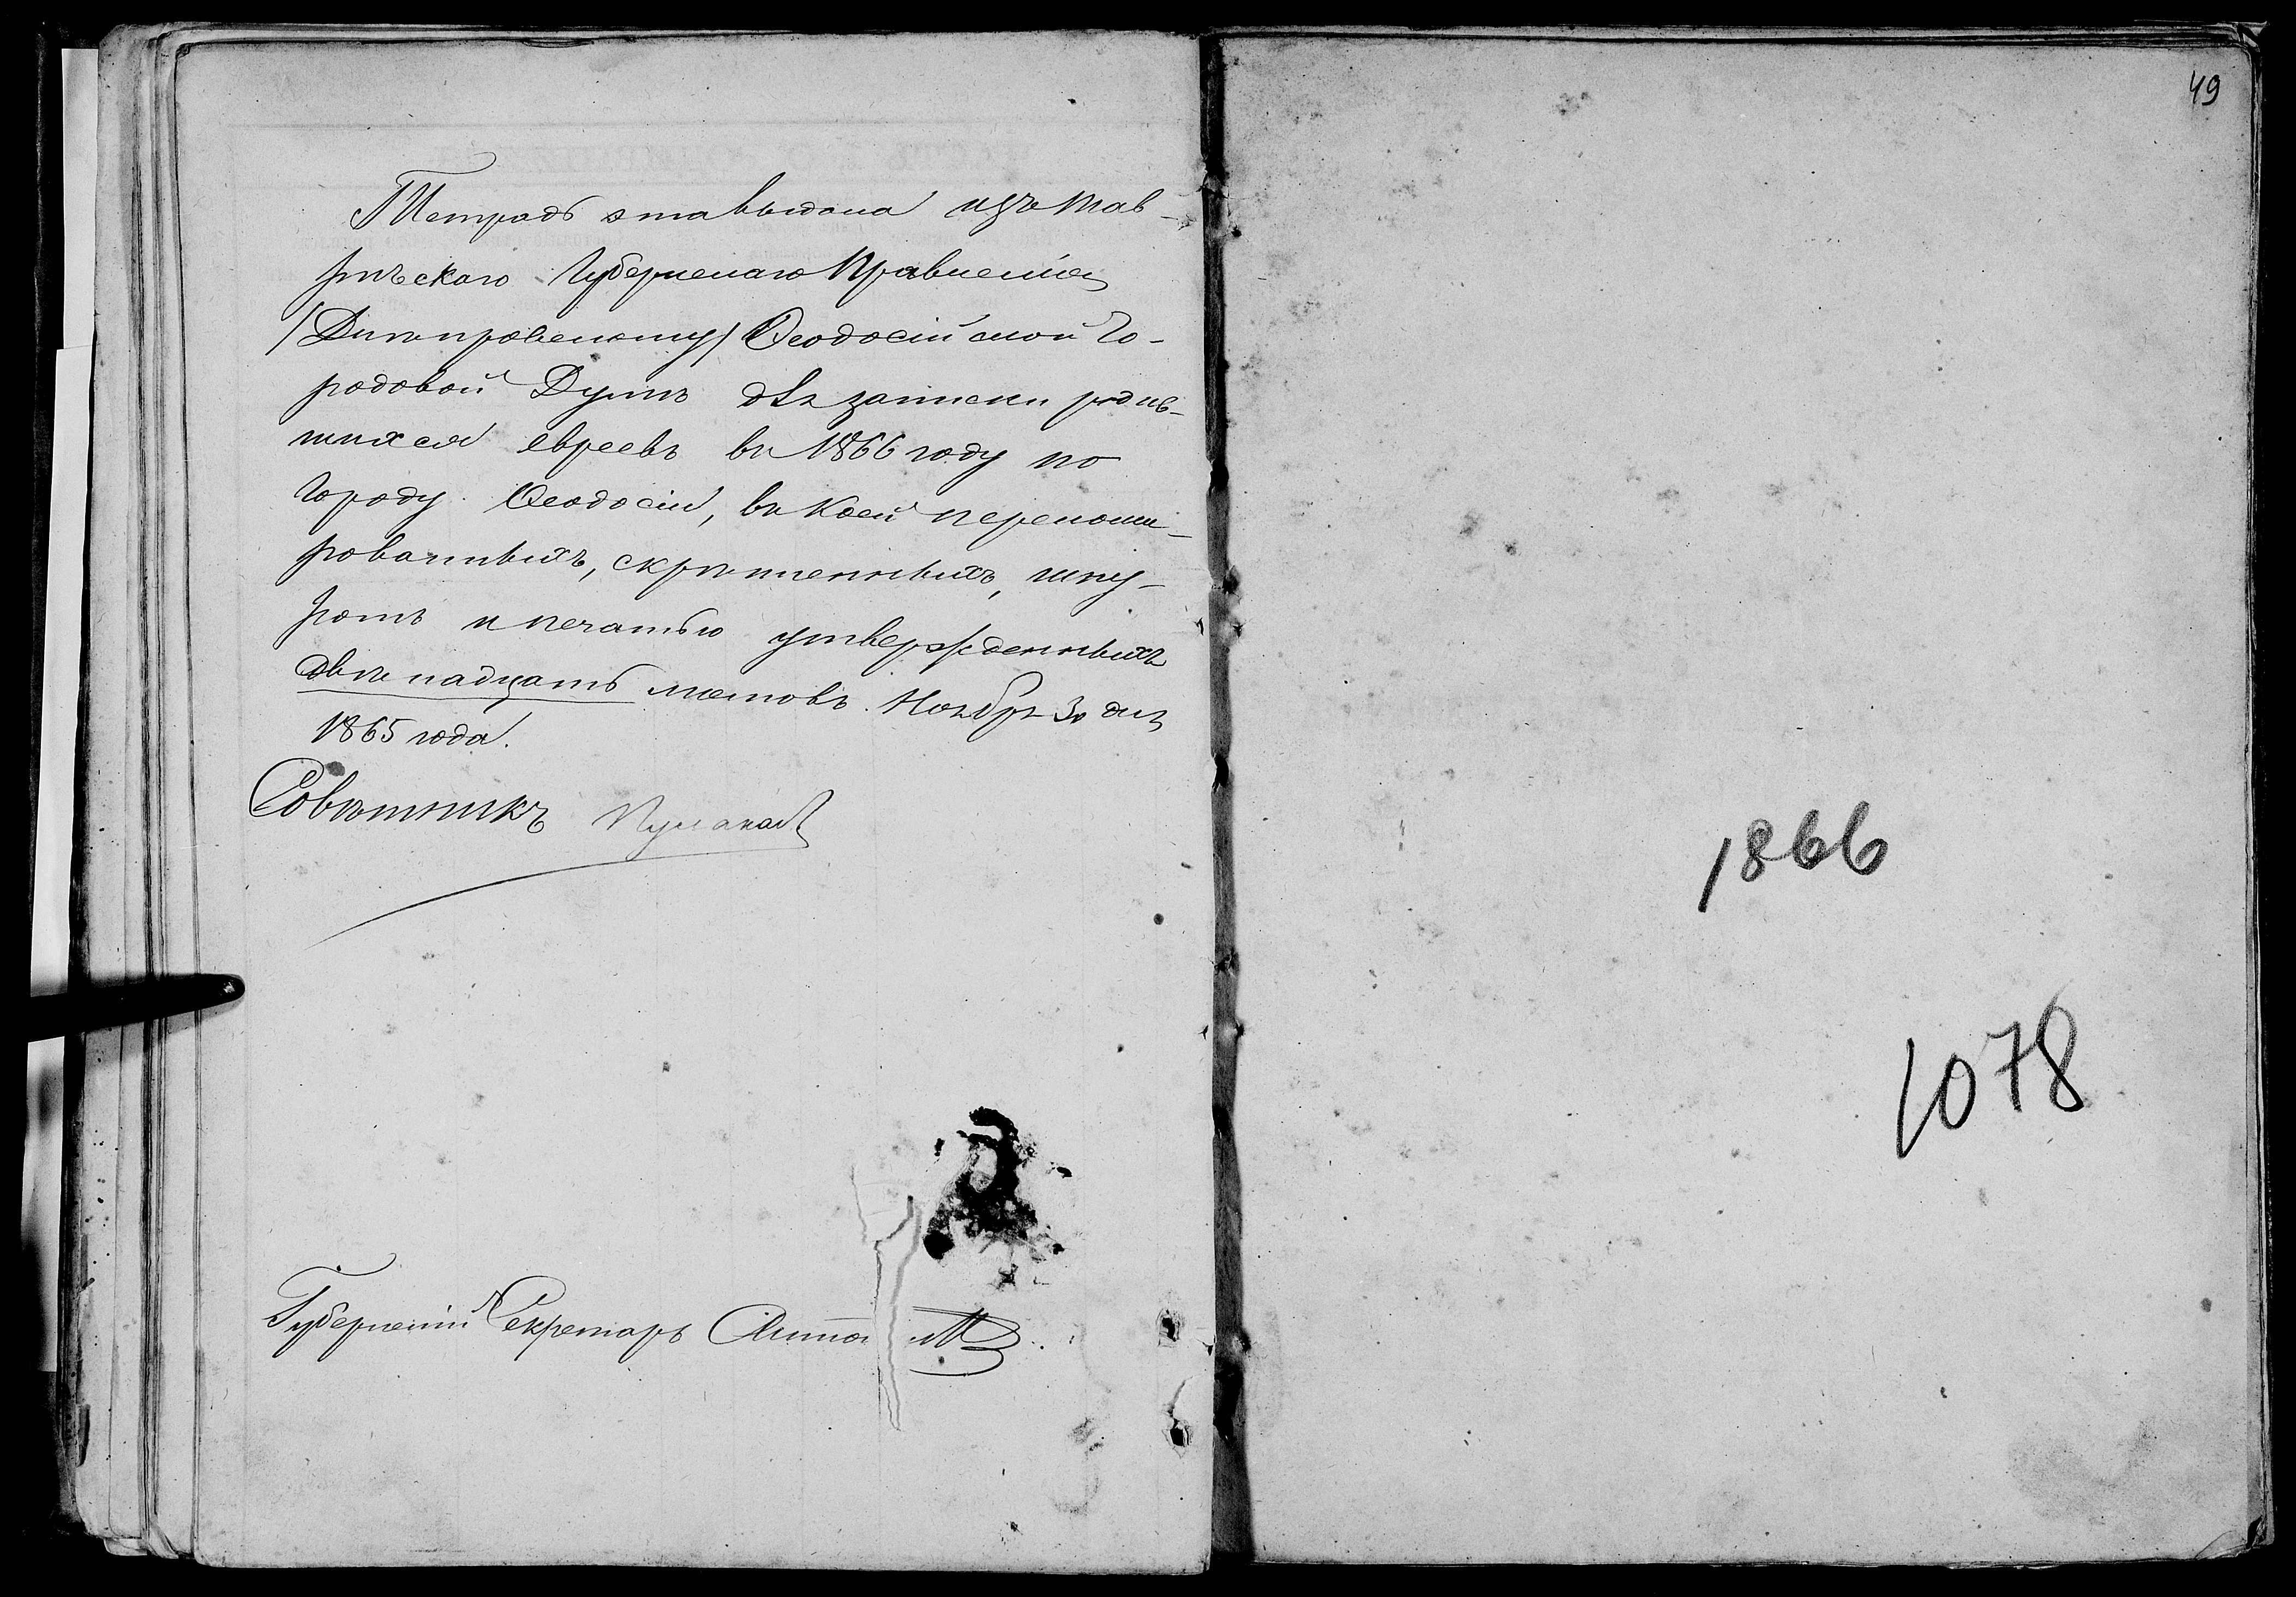 Тетрадь эта выдана изъ Тав-
рическаго Губернскаго Правленія
/Днѣпровскому/ Ѳеодосійской Го-
родовой Думѣ для записки родив-
шихся евреевъ въ 1866 году по
Городу Ѳеодосіи, въ коей перенуме-
рованныхъ, скрѣпленныхъ, шну-
ромъ и печатью утвержденныхъ
двѣнадцать листовъ. Ноября 30 дня
1865 года.
Совѣтникъ
Губернскій Секретарь
49
1866
1078